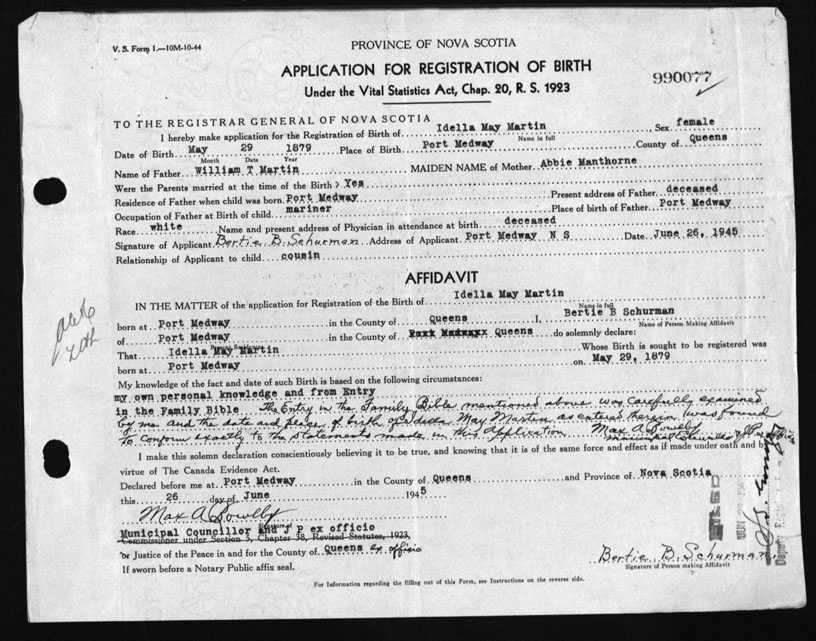 V. S. Form 1.—10M-10-44
PROVINCE OF NOVA SCOTIA
APPLICATION FOR REGISTRATION OF BIRTH
990077
Under the Vital Statistics Act, Chap. 20, R. S. 1923
TO THE REGISTRAR GENERAL OF NOVA SCOTIA
I hereby make application for the Registration of Birth of Idella May Martin Sex female
Name in full
Date of Birth May 29 1879 Place of Birth Port Medway County of Queens
Month Date Year
Name of Father William T Martin MAIDEN NAME of Mother Abbie Manthorne
Were the Parents married at the time of the Birth? Yes
Residence of Father when child was born Port Medway Present address of Father deceased
Occupation of Father at Birth of child mariner Place of birth of Father Port Medway
Race white Name and present address of Physician in attendance at birth deceased
Signature of Applicant Bertie B. Schurman Address of Applicant Port Medway N S Date June 26, 1945
Relationship of Applicant to child cousin
AFFIDAVIT
IN THE MATTER of the application for Registration of the Birth of Idella May Martin
Name in full
born at Port Medway in the County of Queens I, Bertie B Schurman
Name of Person Making Affidavit
of Port Medway in the County of Port Medway Queens do solemnly declare:
Present Residence
That Idella May Martin Whose Birth is sought to be registered was
born at Port Medway on May 29, 1879
My knowledge of the fact and date of such Birth is based on the following circumstances:
my own personal knowledge and from Entry
in the Family Bible The Entry in the Family Bible mentioned above was carefully examined
by me and the date and place of birth of Idella May Martin as entered therein was found
to conform exactly to the statements made in this Application Max A Sowlby
Municipal Councillor & J P ex officio
I make this solemn declaration conscientiously believing it to be true, and knowing that it is of the same force and effect as if made under oath and by
virtue of The Canada Evidence Act.
Declared before me at Port Medway in the County of Queens and Province of Nova Scotia
this 26 day of June 1945
Max A Sowlby
Municipal Councillor and J P ex officio
Commissioner under Section 5, Chapter 38, Revised Statutes, 1923,
or Justice of the Peace in and for the County of Queens ex officio
Bertie B. Schurman
Signature of Person making Affidavit
If sworn before a Notary Public affix seal.
For Information regarding the filling out of this Form, see Instructions on the reverse side.